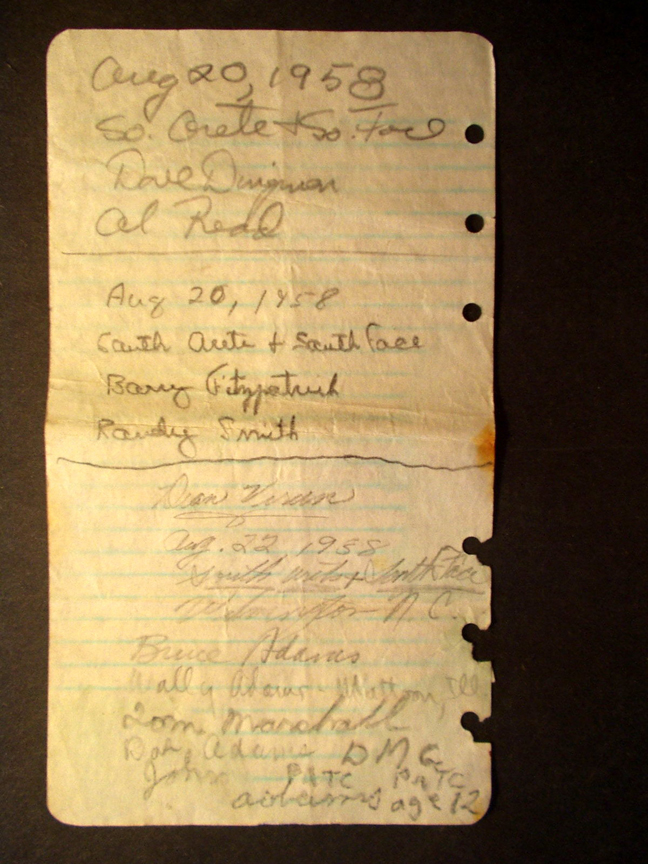 Aug 20, 1958
So. Arete + So. Face
Dave Dingman
Al Read
Aug 20, 1958
South Arete + South Face
Barry Fitzpatrick
Randy Smith
Dean
Aug. 22, 1958
South + South Face
Wilmington N.C.
Bruce Adams
Wally Adams - Mattoon, Ill.
Tom Marshall
Adams DMC
John PATC PATC
adams age 12